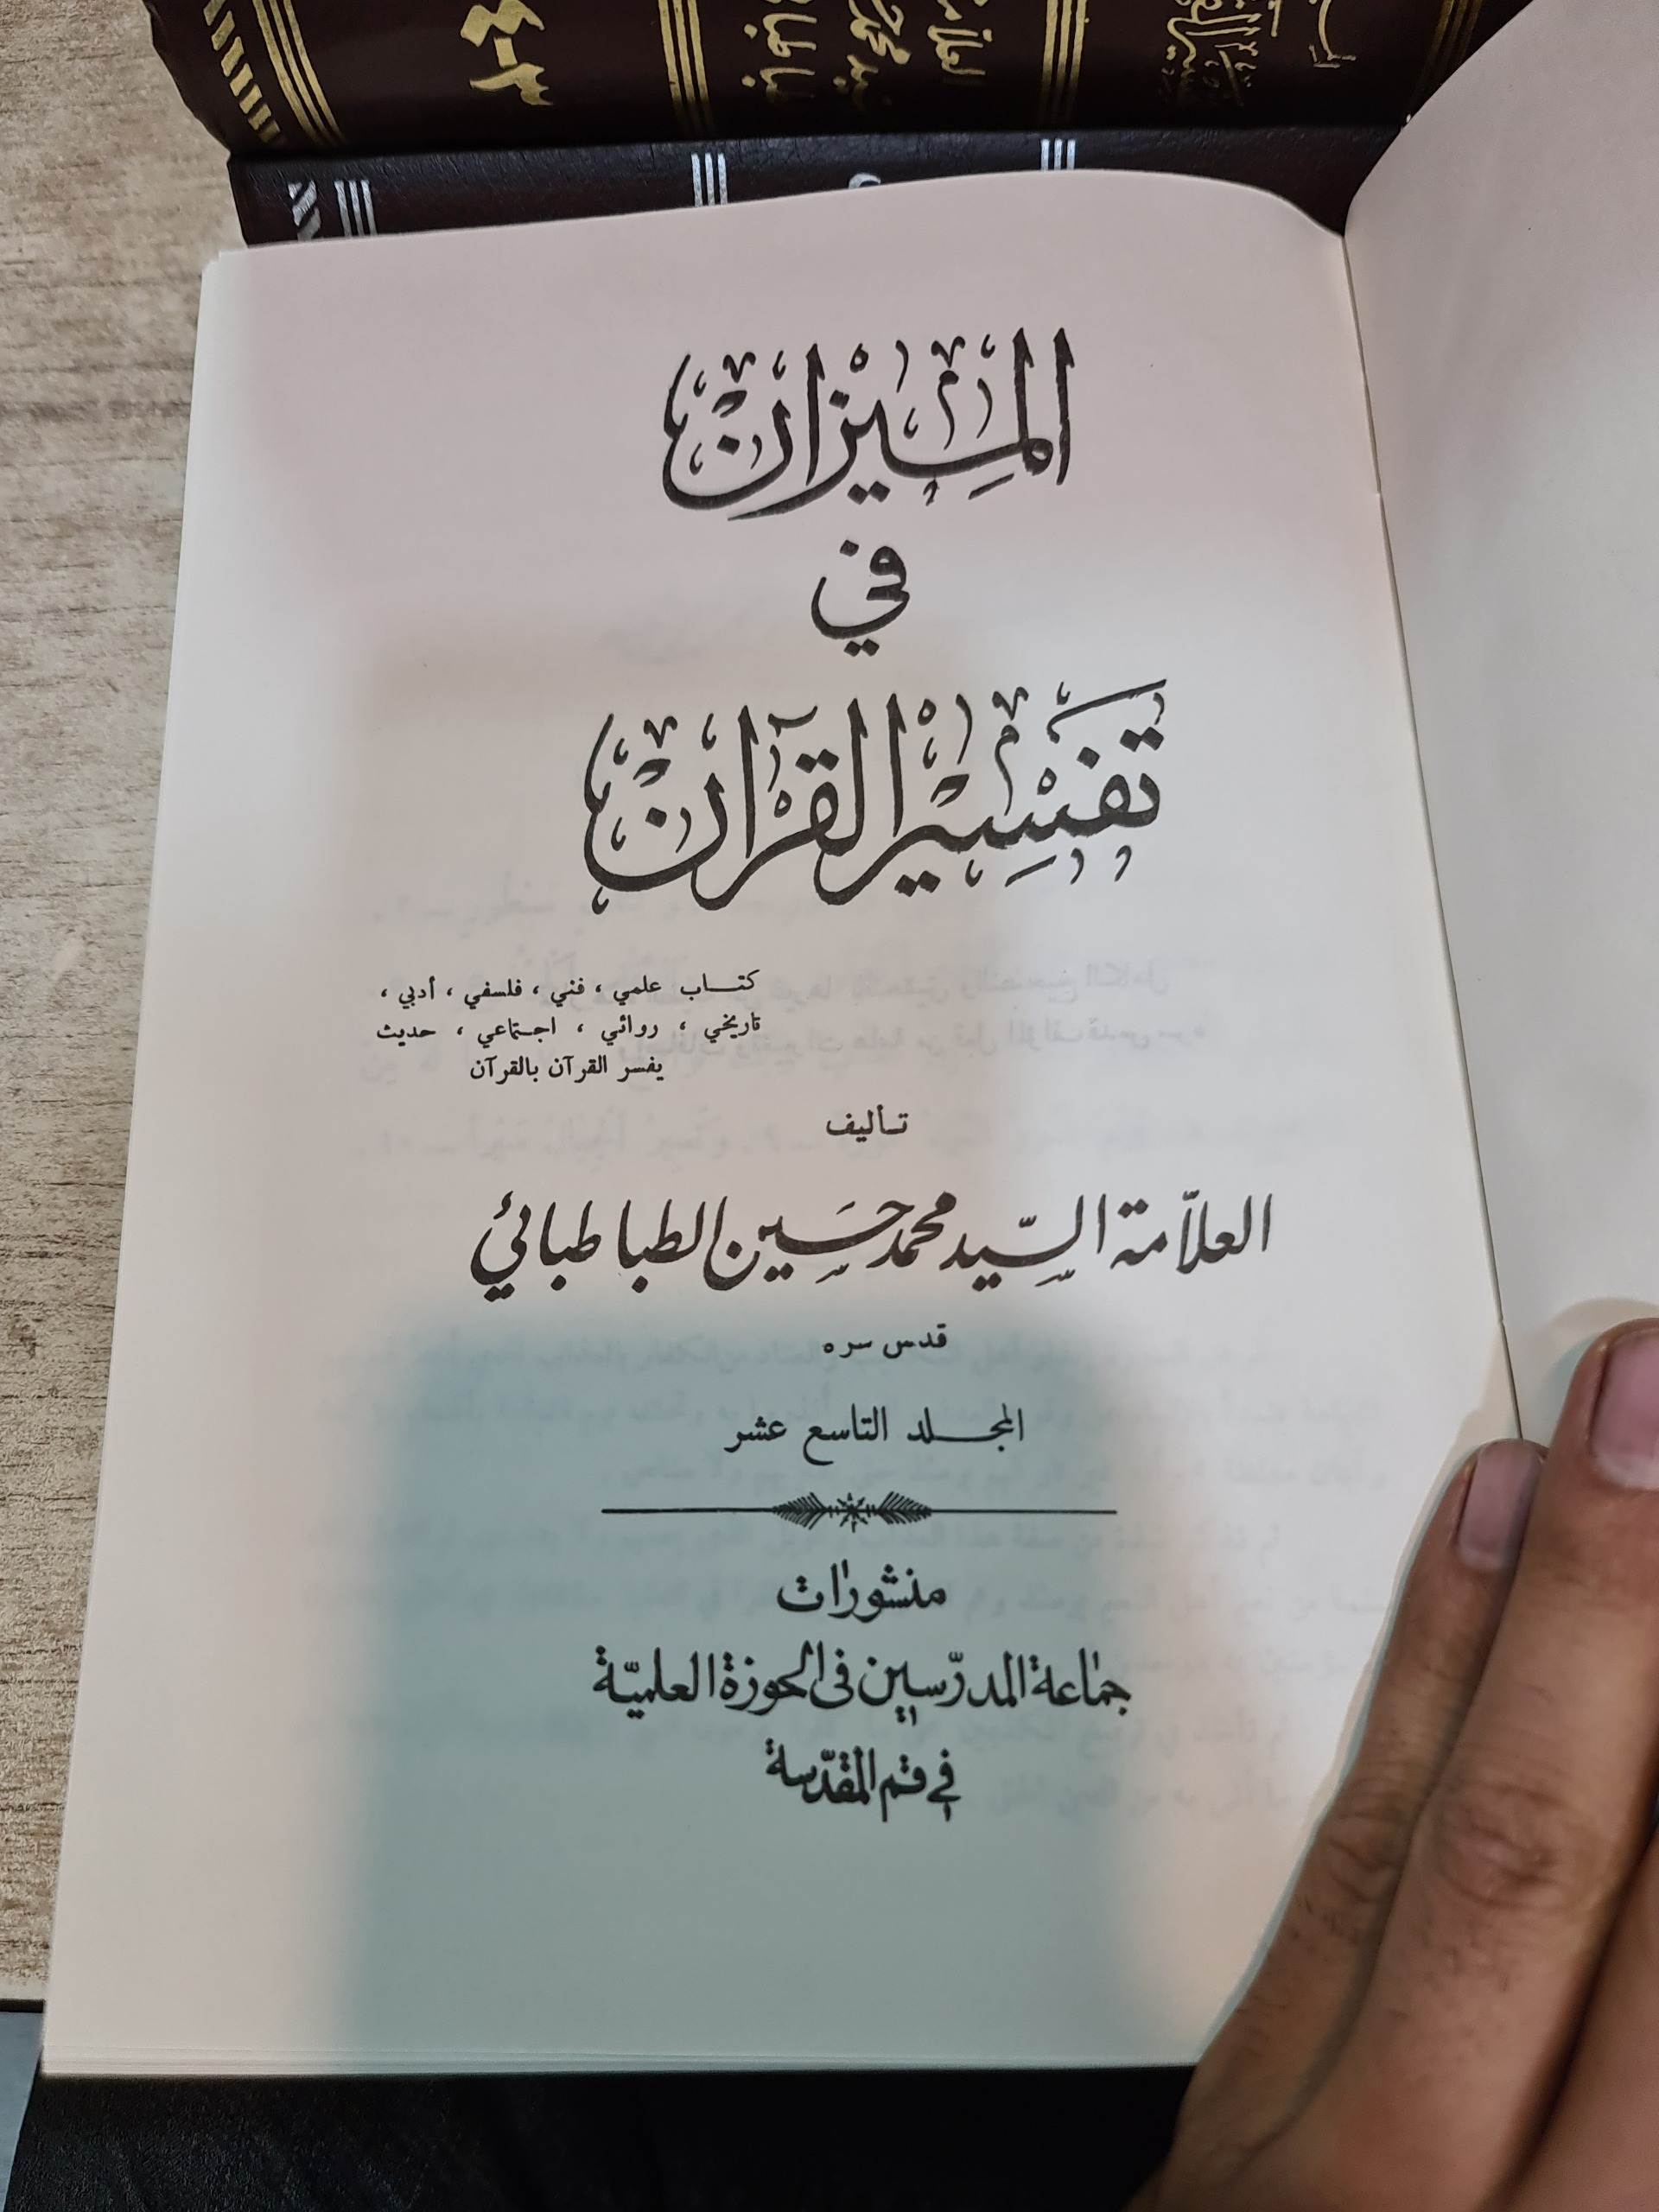 ٣-٤
العلامة
سيد محمد
طباطبا
المِيزَانُ
في
تَفْسِيرِ الْقُرْآنِ
كتـاب علمي ، فني ، فلسفي ، أدبي ،
تاريخي ، روائي ، اجتماعي ، حديث
يفسر القرآن بالقرآن
تأليف
العلاّمة السّيد محمد حسَين الطباطبائي
قدس سره
المجلد التاسع عشر
منشورات
جماعة المدرّسين في الحوزة العلميّة
في قم المقدّسة